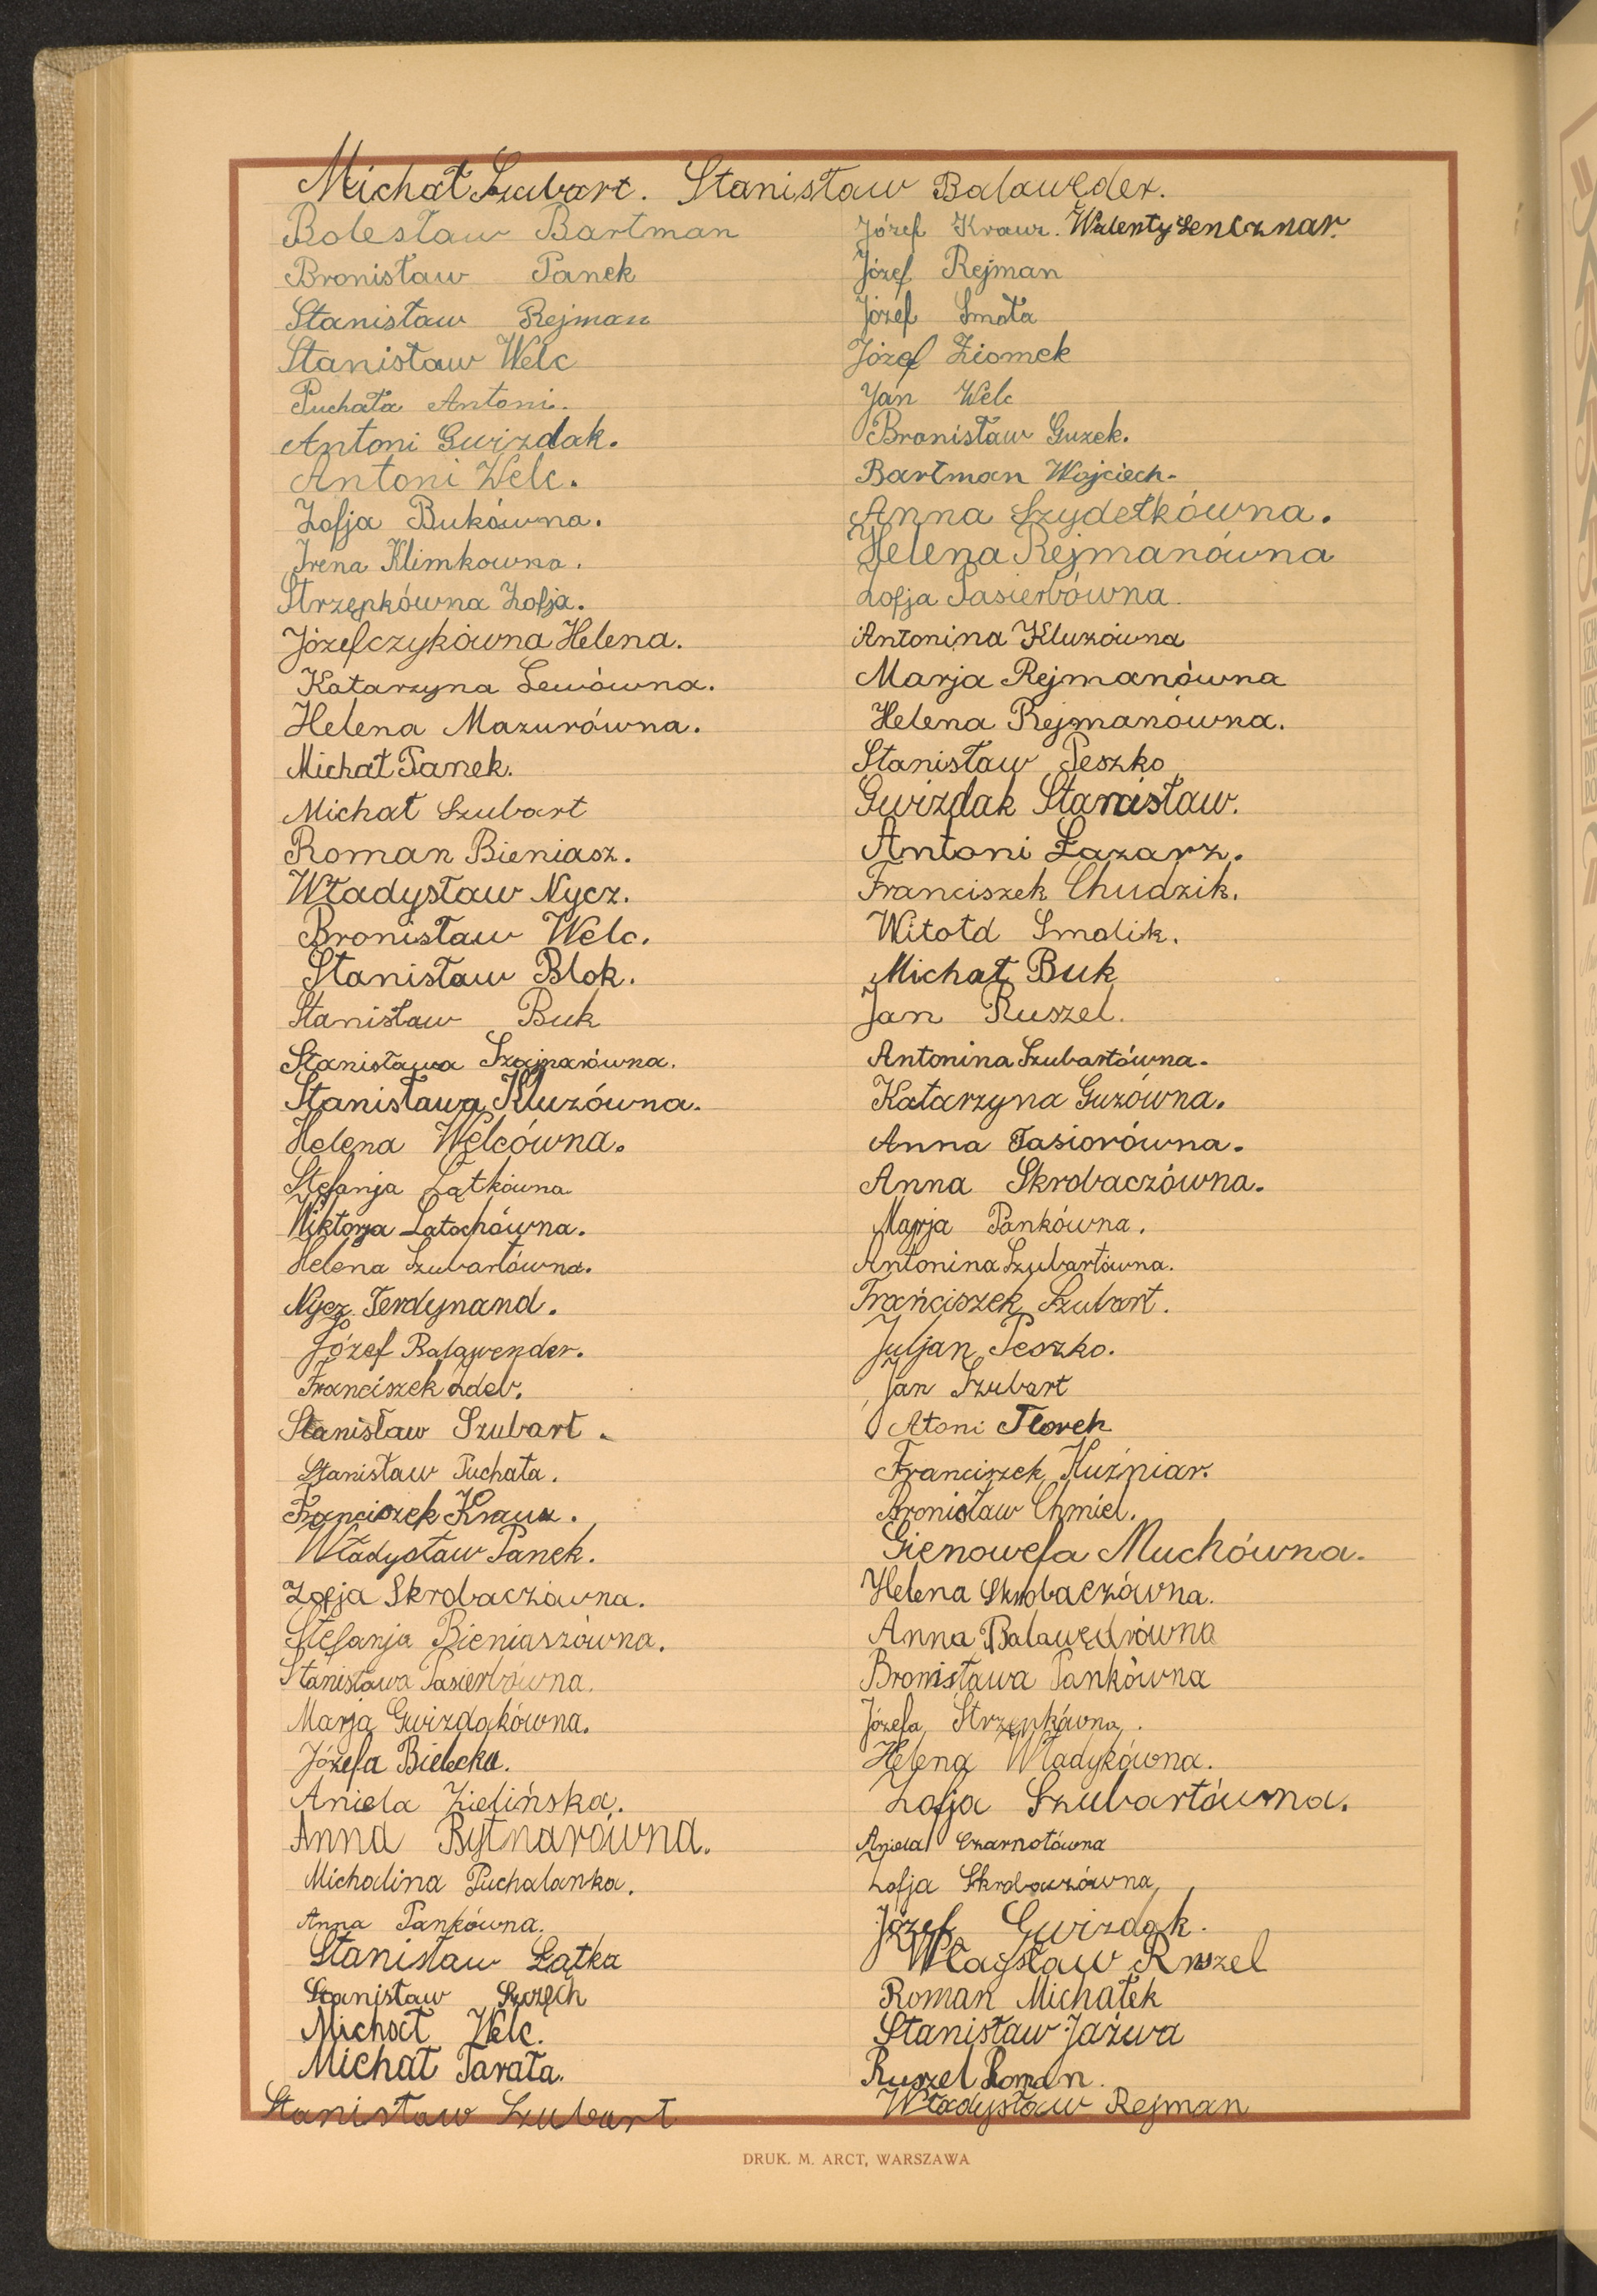 Michał Szubart. Stanisław Balawęder.
Bolesław Bartman
Bronisław Panek
Stanisław Rejman
Stanisław Welc
Puchała Antoni.
Antoni Gwizdak.
Antoni Welc.
Zofja Bukówna.
Irena Klimkowna.
Strzępkówna Zofja.
Józefczykówna Helena.
Katarzyna Lewówna.
Helena Mazurówna.
Michał Panek.
Michał Szubart
Roman Bieniasz.
Władysław Nycz.
Bronisław Welc.
Stanisław Blok.
Stanisław Buk
Stanisława Szajnarówna.
Stanisława Kluzówna.
Helena Welcówna.
Stefanja Łątkówna
Wiktorja Latochówna.
Helena Szubartówna.
Nycz Ferdynand.
Józef Balawender.
Franciszek Zdeb.
Stanisław Szubart.
Stanisław Puchała.
Franciszek Krauz.
Władysław Panek.
Zofja Skrobaczówna.
Stefanja Bieniaszówna.
Stanisława Pasierbówna.
Marja Gwizdakówna.
Józefa Bielecka.
Aniela Zielińska.
Anna Bytnarówna.
Michalina Puchalanka.
Anna Pankówna.
Stanisław Łątka
Stanisław Szczęch
Michał Welc.
Michał Tarała.
Stanisław Szubart
Józef Krauz. Walenty Sencznar.
Józef Rejman
Józef Smoła
Józef Ziomek
Jan Welc
Bronisław Guzek.
Bartman Wojciech.
Anna Szydełkówna.
Helena Rejmanówna
Zofja Pasierbówna.
Antonina Kluzówna
Marja Rejmanówna
Helena Rejmanówna.
Stanisław Peszko
Gwizdak Stanisław.
Antoni Łazarz.
Franciszek Chudzik.
Witołd Smolik.
Michał Buk
Jan Ruszel.
Antonina Szubartówna.
Katarzyna Guzówna.
Anna Tasiorówna.
Anna Skrobaczówna.
Marja Pankówna.
Antonina Szubartówna.
Franciszek Szubart.
Juljan Peszko.
Jan Szubart
Atoni Florek
Franciszek Kuźniar.
Bronisław Chmiel.
Gienowefa Muchówna.
Helena Skrobaczówna.
Anna Balawędrówna
Bronisława Pankówna
Józefa Strzępkówna.
Helena Władykówna.
Zofja Szubartówna.
Aniela Czarnotówna
Zofja Skrobaczówna,
Józef Gwizdak.
Włagsław Ruszel
Roman Michałek
Stanisław Jaźwa
Ruszel Roman.
Władysław Rejman
DRUK. M. ARCT, WARSZAWA